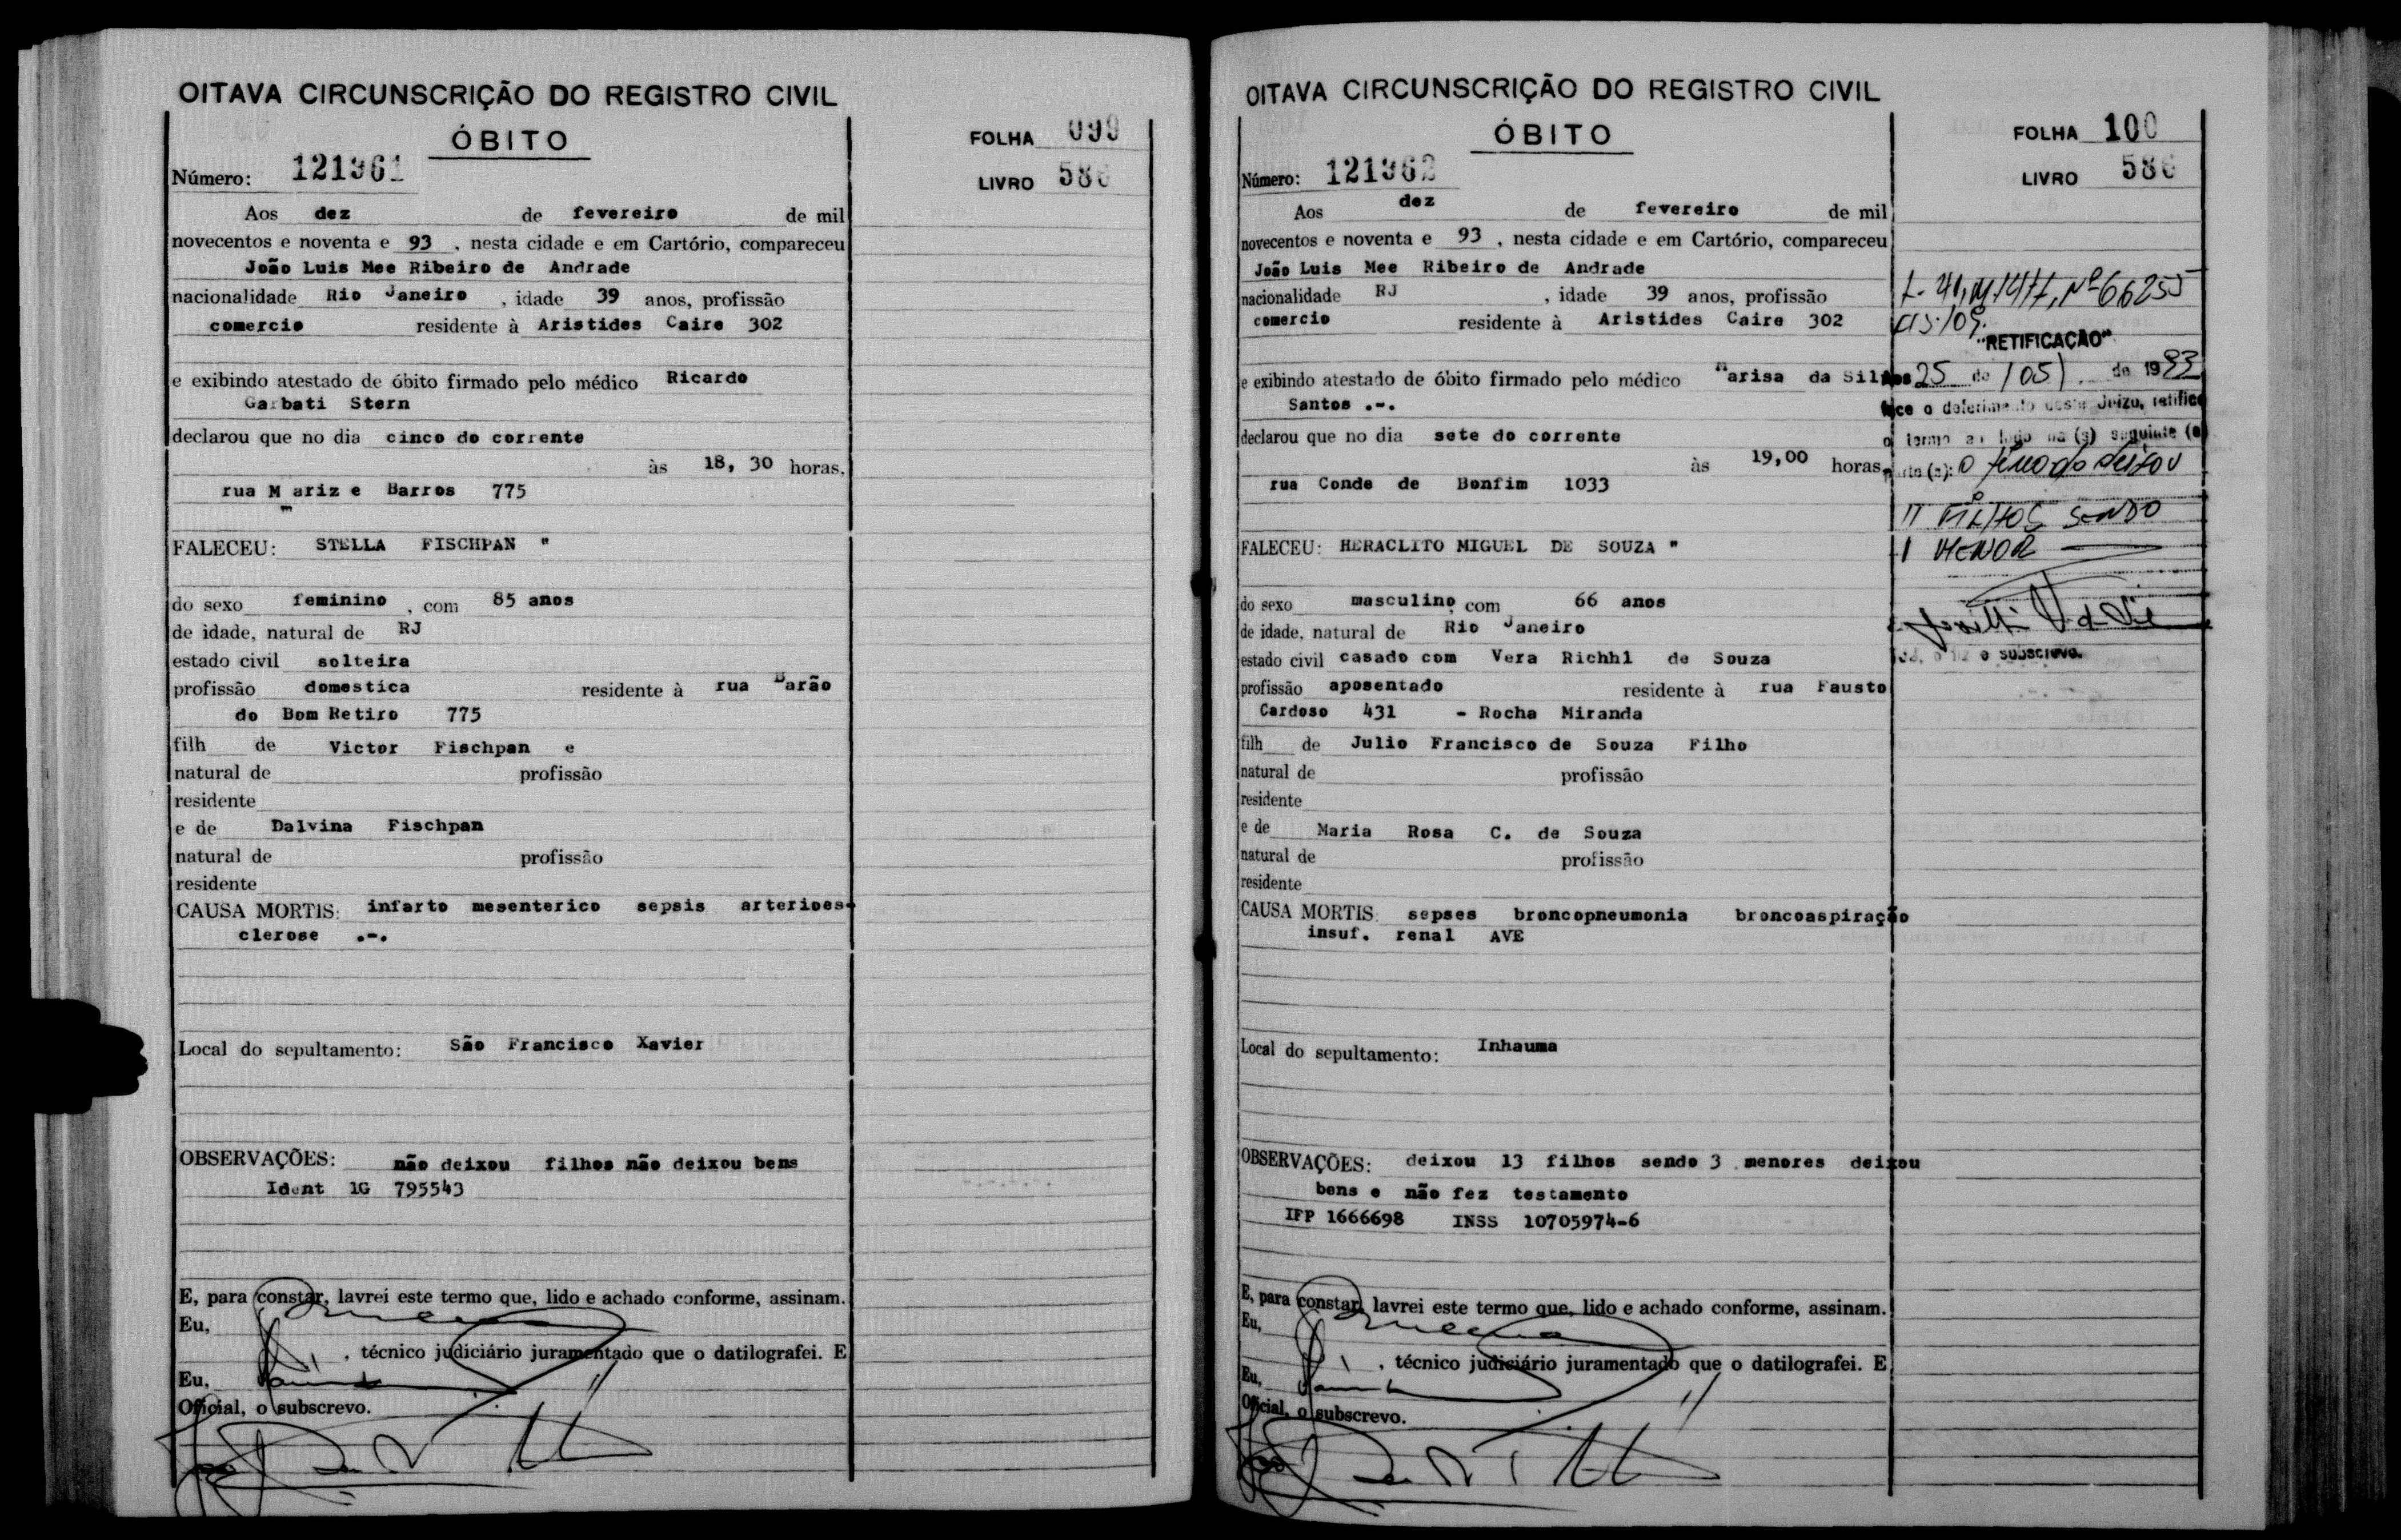 OITAVA CIRCUNSCRIÇÃO DO REGISTRO CIVIL
ÓBITO
FOLHA 099
Número: 121361
LIVRO 586
Aos dez de fevereiro de mil
novecentos e noventa e 93 , nesta cidade e em Cartório, compareceu
João Luis Mee Ribeiro de Andrade
nacionalidade Rio Janeiro , idade 39 anos, profissão
comercio residente à Aristides Caire 302
e exibindo atestado de óbito firmado pelo médico Ricardo
Garbati Stern
declarou que no dia cinco do corrente
às 18, 30 horas.
rua M ariz e Barros 775
FALECEU: STELLA FISCHPAN "
do sexo feminino , com 85 anos
de idade, natural de RJ
estado civil solteira
profissão domestica residente à rua Barão
do Bom Retiro 775
filh de Victor Fischpan e
natural de profissão
residente
e de Dalvina Fischpan
natural de profissão
residente
CAUSA MORTIS: infarto mesenterico sepsis arterioes-
clerose .-.
Local do sepultamento: São Francisco Xavier
OBSERVAÇÕES: não deixou filhos não deixou bens
Ident 1G 795543
E, para constar, lavrei este termo que, lido e achado conforme, assinam.
Eu,
, técnico judiciário juramentado que o datilografei. E
Eu,
Oficial, o subscrevo.
OITAVA CIRCUNSCRIÇÃO DO REGISTRO CIVIL
ÓBITO
FOLHA 100
Número: 121362
LIVRO 586
Aos dez de fevereiro de mil
novecentos e noventa e 93 , nesta cidade e em Cartório, compareceu
João Luis Mee Ribeiro de Andrade
nacionalidade RJ , idade 39 anos, profissão
comercio residente à Aristides Caire 302
e exibindo atestado de óbito firmado pelo médico Marisa da Silva
Santos .-.
declarou que no dia sete do corrente
às 19,00 horas,
rua Conde de Bonfim 1033
FALECEU: HERACLITO MIGUEL DE SOUZA "
do sexo masculino, com 66 anos
de idade, natural de Rio Janeiro
estado civil casado com Vera Richhl de Souza
profissão aposentado residente à rua Fausto
Cardoso 431 - Rocha Miranda
filh de Julio Francisco de Souza Filho
natural de profissão
residente
e de Maria Rosa C. de Souza
natural de profissão
residente
CAUSA MORTIS: sepses broncopneumonia broncoaspiração
insuf. renal AVE
Local do sepultamento: Inhauma
OBSERVAÇÕES: deixou 13 filhos sendo 3 menores deixou
bens e não fez testamento
IFP 1666698 INSS 10705974-6
E, para constar, lavrei este termo que, lido e achado conforme, assinam.
Eu,
, técnico judiciário juramentado que o datilografei. E
Eu,
Oficial, o subscrevo.
Nº 66255
"RETIFICAÇÃO"
25 de 05 de 1993
o deferimento deste Juizo, retifico
o termo ao lado na (s) seguinte (s)
parte (s): o finado deixou
11 FILHOS SENDO
1 MENOR
o subscrevo.